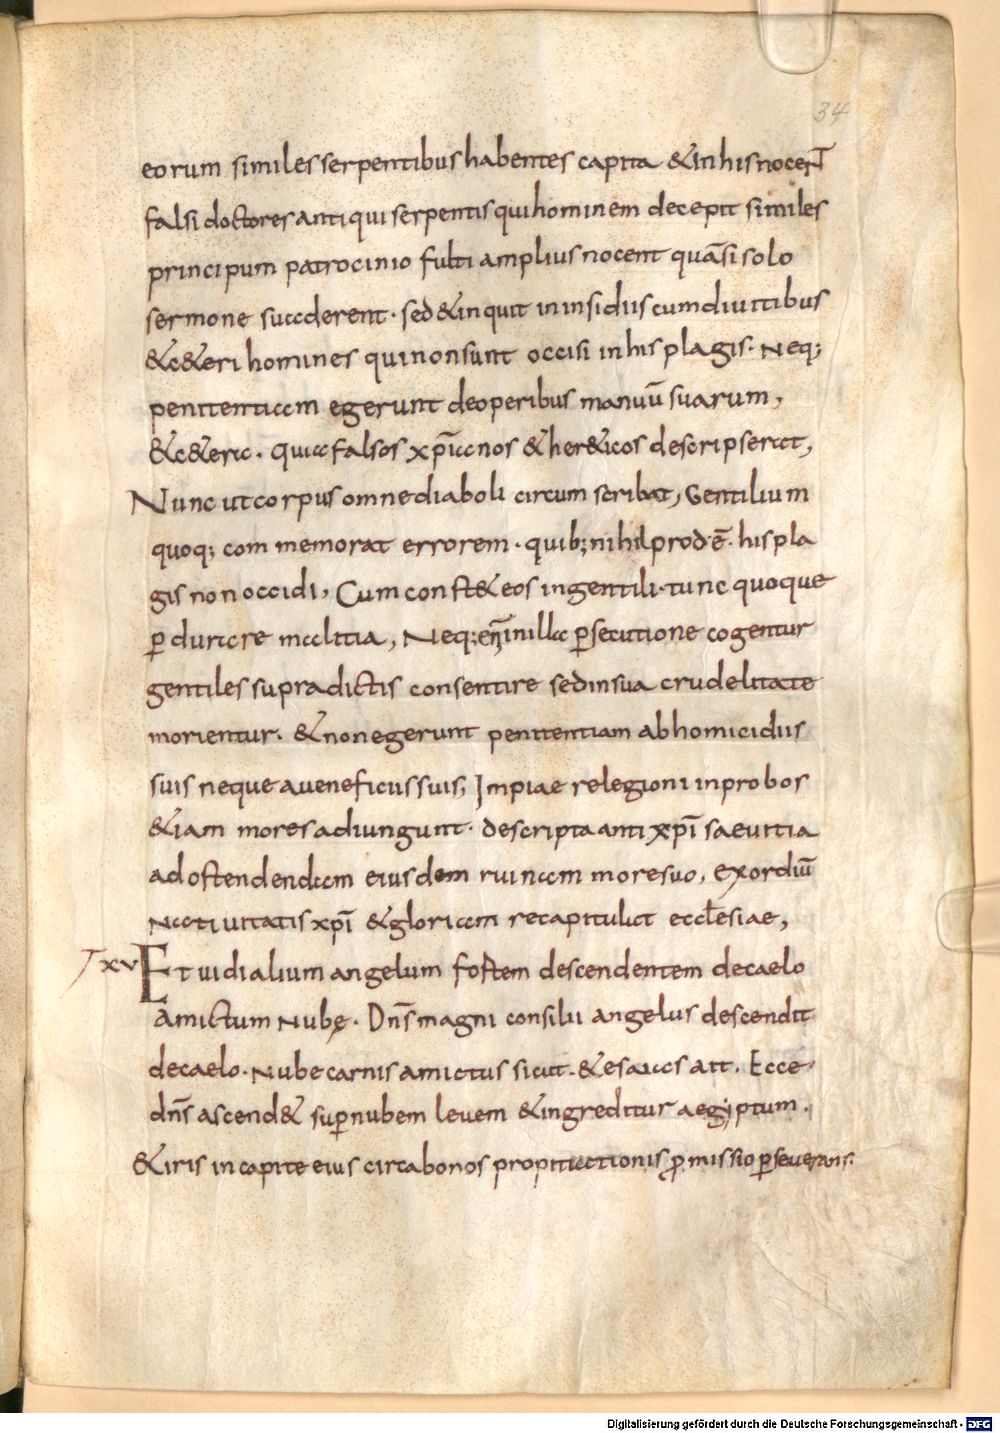 34
eorum similes serpentibus habentes capita & in his nocent
falsi doctores antiqui serpentis qui hominem decepit similes
principum patrocinio fulti amplius nocent quāsi solo
sermone suaderent · sed & inquit in insidiis cum diuitibus
&c&eri homines qui non sunt occisi in his plagis · Neq;
penitentiam egerunt de operibus manuū suarum,
&c&era · quia falsos xp̄ianos & her&icos descripserat,
Nunc ut corpus omne diaboli circum scribat, Gentilium
quoq; commemorat errorem · quib; nihil prod·ē· his pla
gis non occidi, Cum const& eos in gentili · tunc quoque
ꝑdurare malitia, Neq; eni̅ in illa ꝑsecutione cogentur
gentiles supradictis consentire sed in sua crudelitate
morientur · & non egerunt penitentiam ab homicidiis
suis neque a ueneficiis suis, Impiae relegioni inprobos
&iam mores adiungunt · descripta anti xp̄i saeuitia
ad ostendendam eiusdem ruinam more suo, exordiū
Natiuitatis xp̄i & gloriam recapitulat ecclesiae,
xv Et uidi alium angelum fostem descendentem de caelo
amictum Nubę · Dn̄s magni consilii angelus descendit
de caelo · Nube carnis amictus sicut · & esaias ait · Ecce
dn̄s ascend& suꝑ nubem leuem & ingreditur aegyptum ·
& iris in capite eius circa bonos propitiationis ꝓmissio ꝑseuerans ·
Digitalisierung gefördert durch die Deutsche Forschungsgemeinschaft - DFG